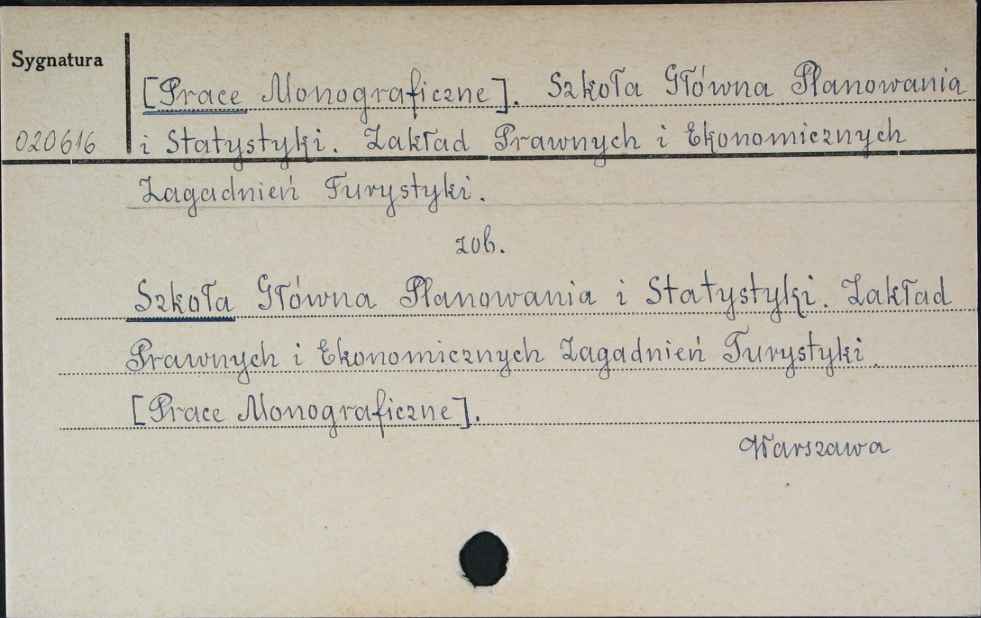 Sygnatura
[Prace Monograficzne]. Szkoła Główna Planowania
020616 i Statystyki. Zakład Prawnych i Ekonomicznych
Zagadnień Turystyki.
zob.
Szkoła Główna Planowania i Statystyki. Zakład
Prawnych i Ekonomicznych Zagadnień Turystyki.
[Prace Monograficzne].
Warszawa